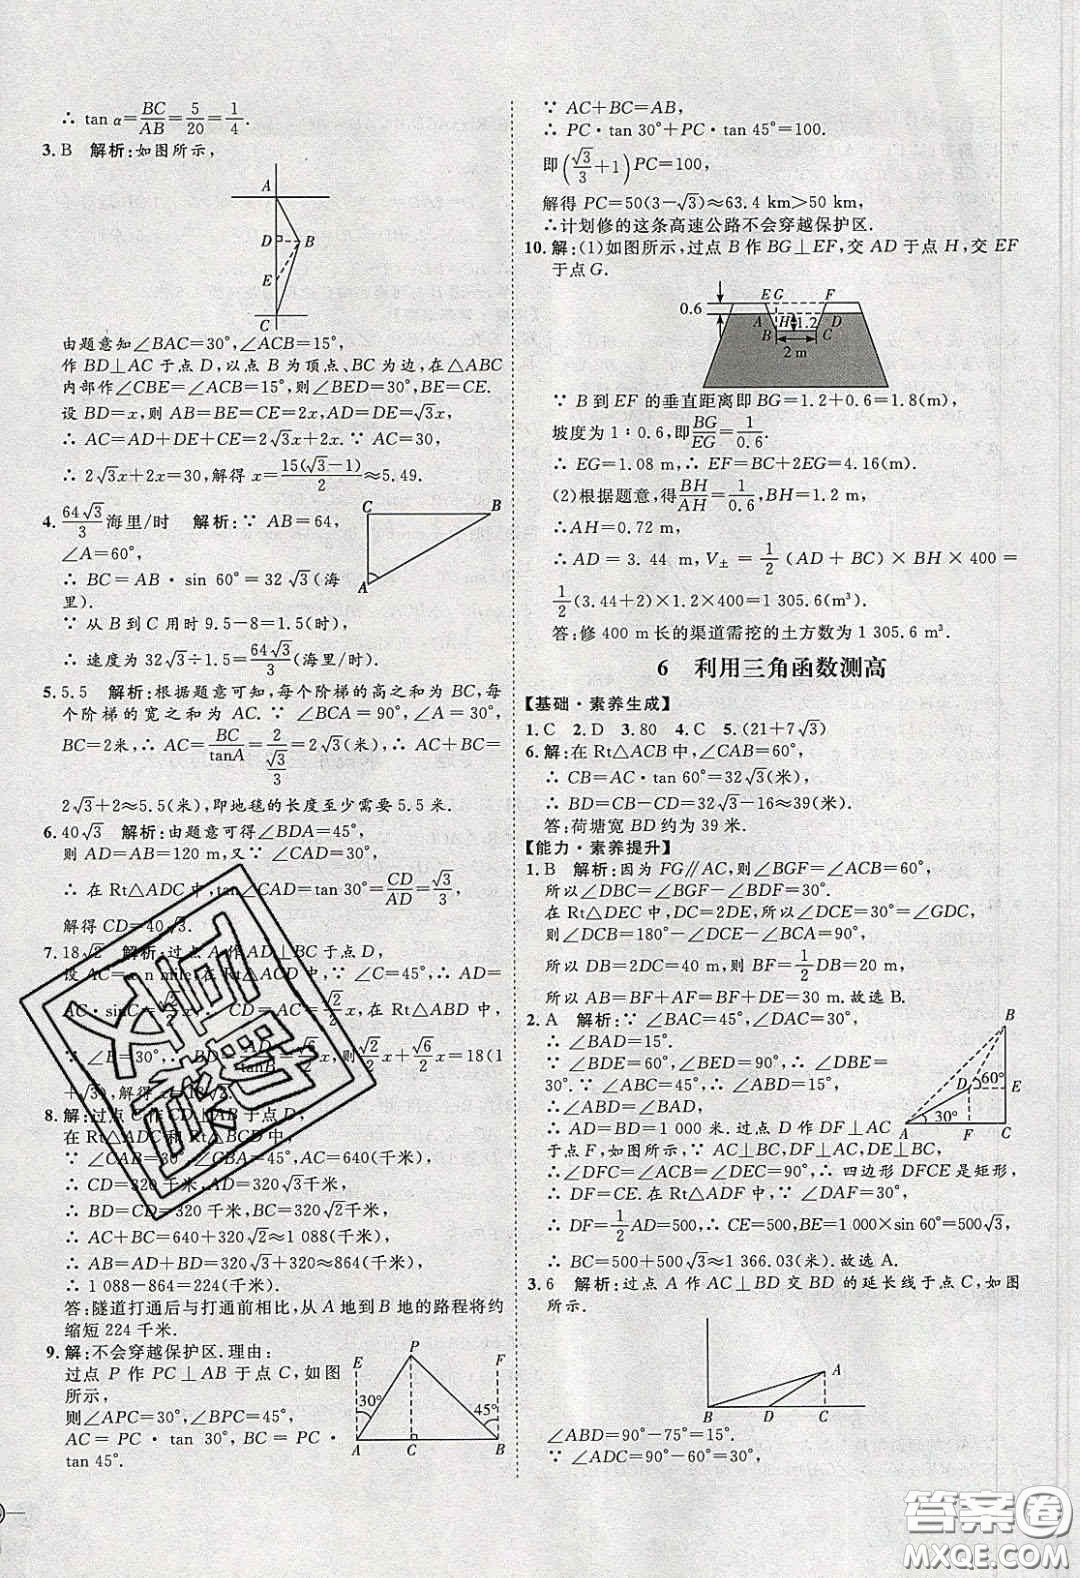 ∴ tan α=BC/AB=5/20=1/4.
3. B　解析:如图所示,
A
D
B
E
C
由题意知∠BAC=30°,∠ACB=15°,
作 BD⊥AC 于点 D,以点 B 为顶点、BC 为边,在△ABC
内部作∠CBE=∠ACB=15°,则∠BED=30°,BE=CE.
设 BD=x,则 AB=BE=CE=2x,AD=DE=√3x,
∴ AC=AD+DE+CE=2√3x+2x.∵ AC=30,
∴ 2√3x+2x=30,解得 x=15(√3-1)/2≈5.49.
4. 64√3/3海里/时　解析:∵ AB=64,
∠A=60°,
∴ BC=AB·sin 60°=32√3(海
里).
C B
A
∵ 从 B 到 C 用时 9.5-8=1.5(时),
∴ 速度为 32√3÷1.5=64√3/3(海里/时).
5. 5.5　解析:根据题意可知,每个阶梯的高之和为 BC,每
个阶梯的宽之和为 AC.∵ ∠BCA=90°,∠A=30°,
BC=2米,∴ AC=BC/tanA=2/(√3/3)=2√3(米),∴ AC+BC=
2√3+2≈5.5(米),即地毯的长度至少需要 5.5 米.
6. 40√3　解析:由题意可得∠BDA=45°,
则 AD=AB=120 m,又∵ ∠CAD=30°,
∴ 在 Rt△ADC 中,tan∠CAD=tan 30°=CD/AD=√3/3,
解得 CD=40√3.
7. 18√2　解析:过点 A 作 AD⊥BC 于点 D,
设 AC=x n mile,在 Rt△ADC 中,∵ ∠C=45°,∴ AD=
AC·sinC=√2/2x,则 CD=√2/2x,在 Rt△ABD 中,
∵ ∠B=30°,∴ BD=AD/tanB=√6/2x,则√2/2x+√6/2x=18(1
+√3),解得 x=18√2.
8. 解:过点 C 作 CD⊥AB 于点 D,
在 Rt△ADC 和 Rt△BCD 中,
∵ ∠CAB=30°,∠CBA=45°,AC=640(千米),
∴ CD=320 千米,AD=320√3(千米),
∴ BD=CD=320 千米,BC=320√2(千米),
∴ AC+BC=640+320√2≈1 088(千米),
∴ AB=AD+BD=320√3+320≈864(千米),
∴ 1 088-864=224(千米).
答:隧道打通后与打通前相比,从 A 地到 B 地的路程将约
缩短 224 千米.
9. 解:不会穿越保护区.理由:
过点 P 作 PC⊥AB 于点 C,如图
所示,
则∠APC=30°,∠BPC=45°,
AC=PC·tan 30°,BC=PC·
tan 45°.
E P F
30° 45°
A C B
∵ AC+BC=AB,
∴ PC·tan 30°+PC·tan 45°=100.
即(√3/3+1)PC=100,
解得 PC=50(3-√3)≈63.4 km>50 km.
∴计划修的这条高速公路不会穿越保护区.
10. 解:(1)如图所示,过点 B 作 BG⊥EF,交 AD 于点 H,交 EF
于点 G.
E G F
0.6
A H 1.2 D
B C
2 m
∵ B 到 EF 的垂直距离即 BG=1.2+0.6=1.8(m),
坡度为 1∶0.6,即BG/EG=1/0.6.
∴ EG=1.08 m,∴ EF=BC+2EG=4.16(m).
(2)根据题意,得BH/AH=1/0.6,BH=1.2 m,
∴AH=0.72 m,
∴ AD=3.44 m,V土=1/2(AD+BC)×BH×400=
1/2(3.44+2)×1.2×400=1 305.6(m³).
答:修 400 m长的渠道需挖的土方数为 1 305.6 m³.
6　利用三角函数测高
【基础·素养生成】
1. C　2. D　3. 80　4. C　5. (21+7√3)
6. 解:在 Rt△ACB 中,∠CAB=60°,
∴ CB=AC·tan 60°=32√3(米),
∴ DB=CB-CD=32√3-16≈39(米).
答:荷塘宽 BD 约为 39 米.
【能力·素养提升】
1. B　解析:因为 FG∥AC,所以∠BGF=∠ACB=60°,
所以∠DBC=∠GBF-∠BDF=30°.
在 Rt△DEC 中,DC=2DE,所以∠DCE=30°=∠GDC,
所以∠DCB=180°-∠ACB-∠DCE=90°,
所以 DB=2DC=40 米,则 BF=1/2DB=20 米,
所以 AB=BF+AF=BF+DE=30 米.故选 B.
2. A　解析:∵ ∠BAC=45°,∠DAC=30°,
∴ ∠BAD=15°.
∵ ∠BDE=60°,∠BED=90°,∴ ∠DBE=
30°.∵ ∠BAC=45°,∴ ∠ABC=45°,
∴ ∠ABD=15°,
∴ ∠ABD=∠BAD,
∴ AD=BD=1 000 米.过点 D 作 DF⊥AC
于点 F,如图所示.∵ AC⊥BC,DF⊥AC,DE⊥BC,
∴ ∠DFC=∠ACB=∠DEC=90°,∴ 四边形 DFCE 是矩形,
∴ DF=CE.在 Rt△ADF 中,∵ ∠DAF=30°,
∴ DF=1/2AD=500,∴ CE=500,BE=1 000×sin 60°=500√3,
∴ BC=500+500√3≈1 366.03(米).故选 A.
B
D 60° E
30°
A F C
3. 6　解析:过点 A 作 AC⊥BD 交 BD 的延长线于点 C,如图
所示.
A
B D C
∠ABD=90°-75°=15°,
∵ ∠ADC=90°-60°=30°,
答案圈
MXQE.COM